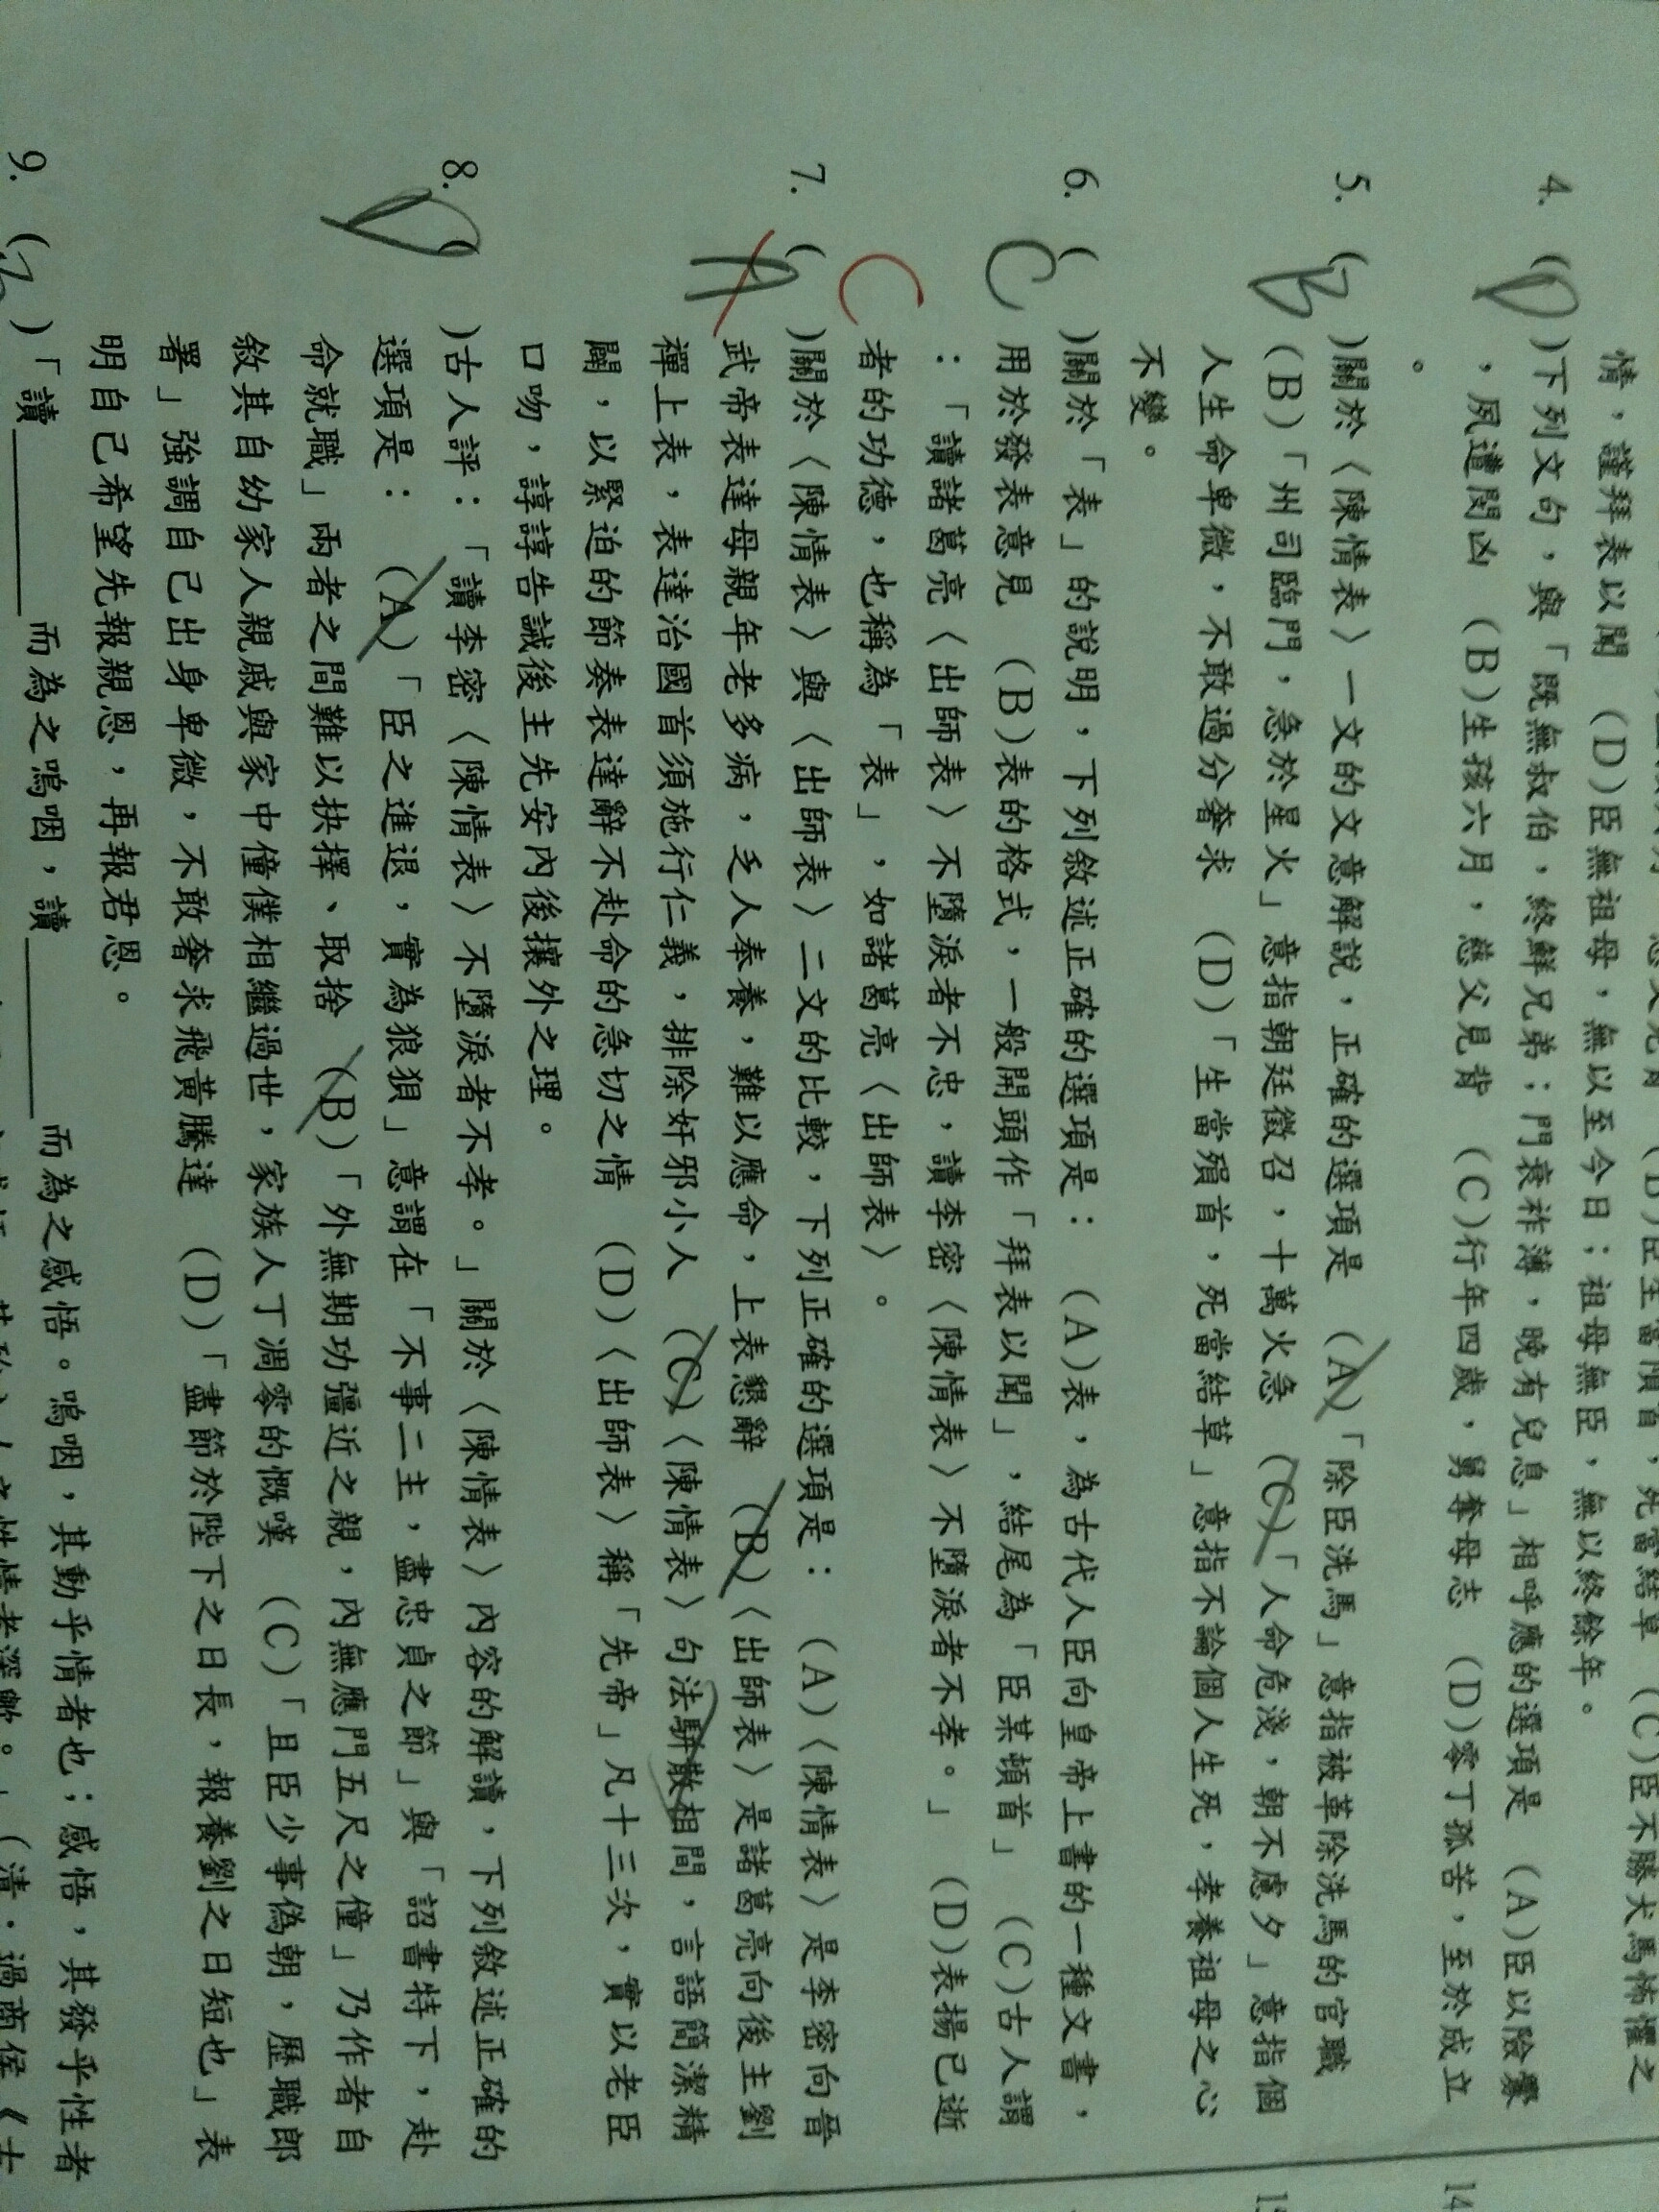 情，謹拜表以聞　(D)臣無祖母，無以至今日；祖母無臣，無以終餘年。
4. (D)下列文句，與「既無叔伯，終鮮兄弟；門衰祚薄，晚有兒息」相呼應的選項是　(A)臣以險釁
，夙遭閔凶　(B)生孩六月，慈父見背　(C)行年四歲，舅奪母志　(D)零丁孤苦，至於成立
。
5. (B)關於〈陳情表〉一文的文意解說，正確的選項是　(A)「除臣洗馬」意指被革除洗馬的官職
(B)「州司臨門，急於星火」意指朝廷徵召，十萬火急　(C)「人命危淺，朝不慮夕」意指個
人生命卑微，不敢過分奢求　(D)「生當殞首，死當結草」意指不論個人生死，孝養祖母之心
不變。
6. (C)關於「表」的說明，下列敘述正確的選項是：　(A)表，為古代人臣向皇帝上書的一種文書，
用於發表意見　(B)表的格式，一般開頭作「拜表以聞」，結尾為「臣某頓首」　(C)古人謂
：「讀諸葛亮〈出師表〉不墮淚者不忠，讀李密〈陳情表〉不墮淚者不孝。」　(D)表揚已逝
者的功德，也稱為「表」，如諸葛亮〈出師表〉。
C
7. (A)關於〈陳情表〉與〈出師表〉二文的比較，下列正確的選項是：　(A)〈陳情表〉是李密向晉
武帝表達母親年老多病，乏人奉養，難以應命，上表懇辭　(B)〈出師表〉是諸葛亮向後主劉
禪上表，表達治國首須施行仁義，排除奸邪小人　(C)〈陳情表〉句法駢散相間，言語簡潔精
闢，以緊迫的節奏表達辭不赴命的急切之情　(D)〈出師表〉稱「先帝」凡十三次，實以老臣
口吻，諄諄告誡後主先安內後攘外之理。
8. (D)古人評：「讀李密〈陳情表〉不墮淚者不孝。」關於〈陳情表〉內容的解讀，下列敘述正確的
選項是：　(A)「臣之進退，實為狼狽」意謂在「不事二主，盡忠貞之節」與「詔書特下，赴
命就職」兩者之間難以抉擇、取捨　(B)「外無期功彊近之親，內無應門五尺之僮」乃作者自
敘其自幼家人親戚與家中僮僕相繼過世，家族人丁凋零的慨嘆　(C)「且臣少事偽朝，歷職郎
署」強調自己出身卑微，不敢奢求飛黃騰達　(D)「盡節於陛下之日長，報養劉之日短也」表
明自己希望先報親恩，再報君恩。
9. ( )「讀＿＿＿＿而為之嗚咽，讀＿＿＿＿而為之感悟。嗚咽，其動乎情者也；感悟，其發乎性者
(清．過商侯《古
14
15